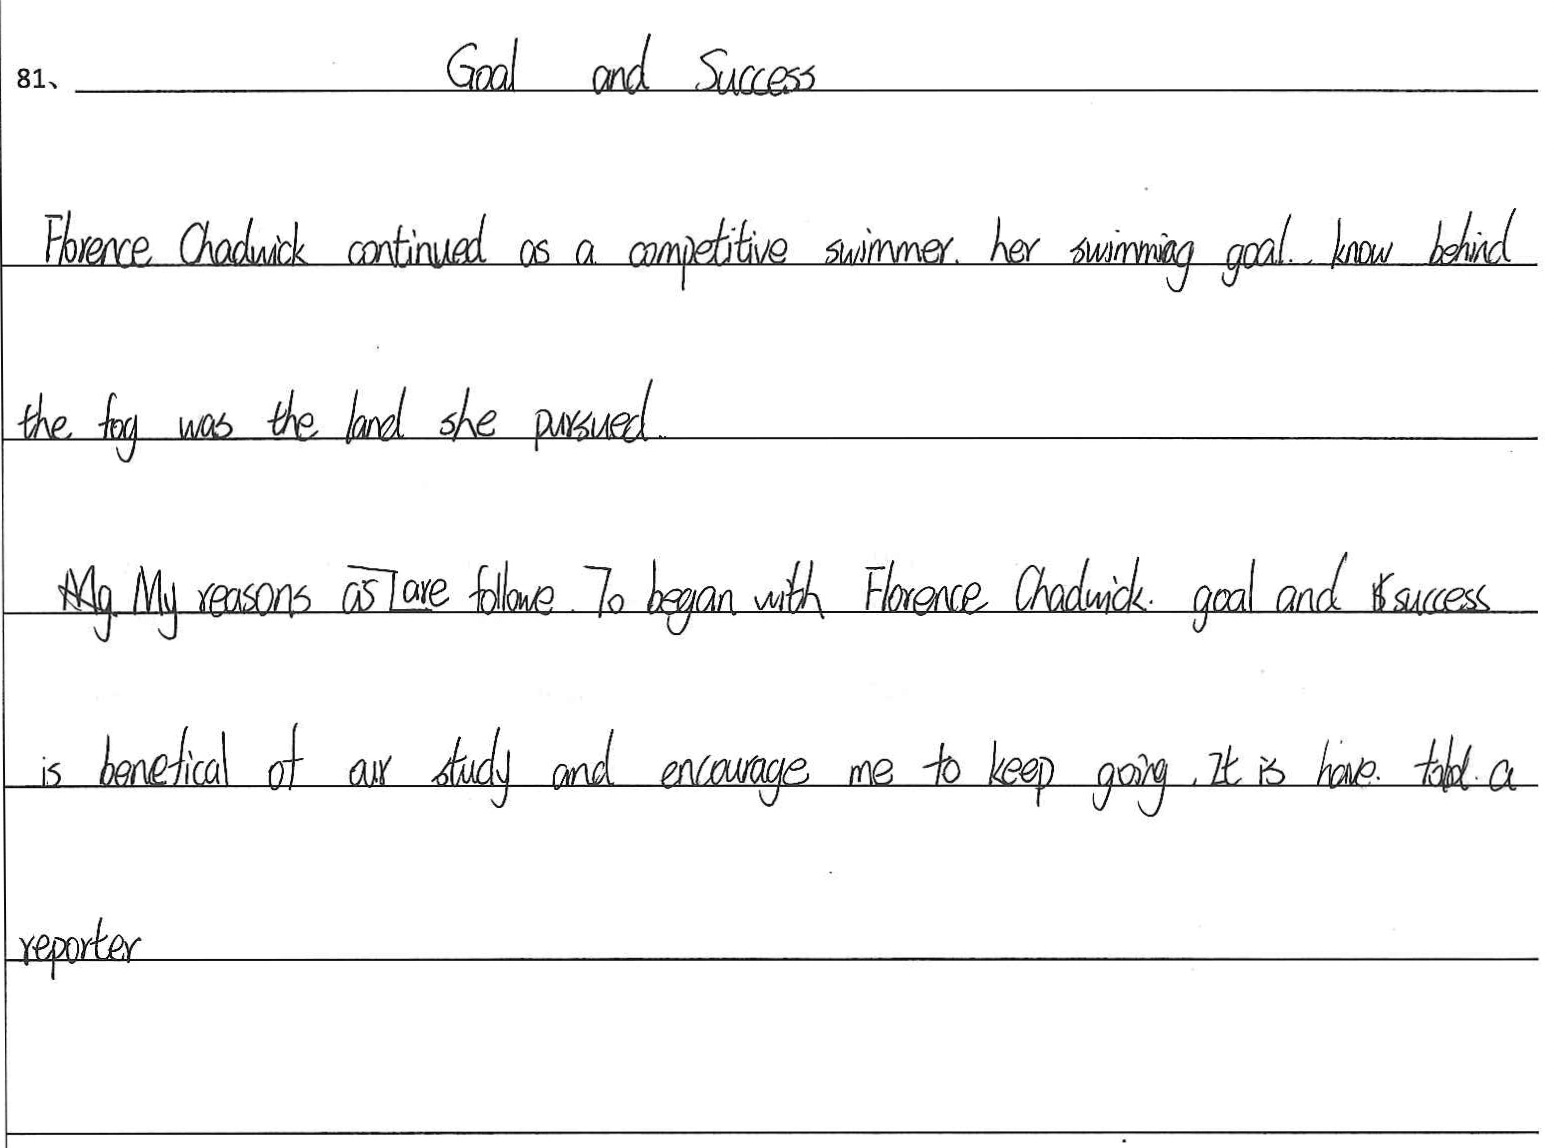 81、 Goal and Success
Florence Chadwick continued as a competitive swimmer. her swimming goal. know behind
the fog was the land she pursued.
My reasons as are follows. To began with Florence Chadwick. goal and success
is benefical of our study and encourage me to keep going. It is have. told. a
reporter